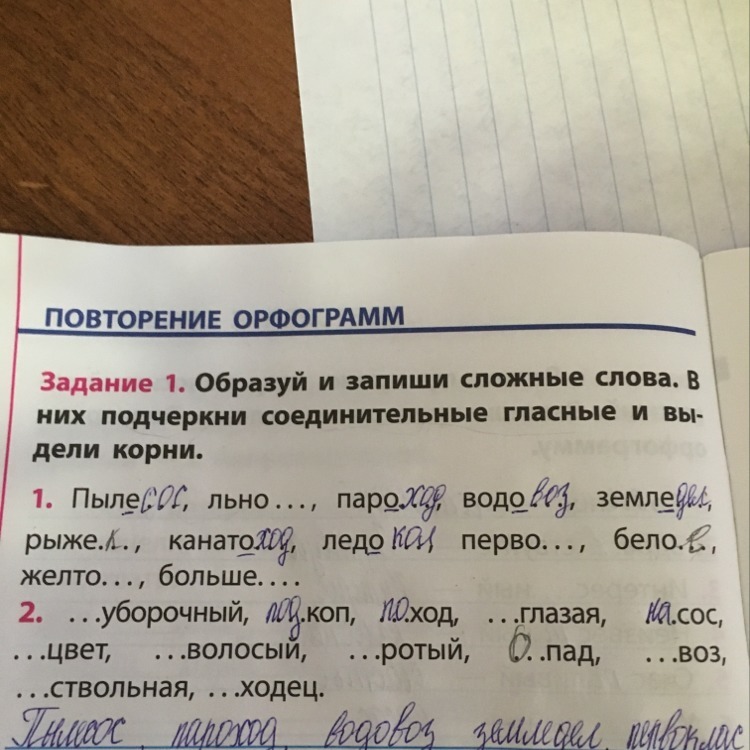 ПОВТОРЕНИЕ ОРФОГРАММ
Задание 1. Образуй и запиши сложные слова. В
них подчеркни соединительные гласные и вы-
дели корни.
1. Пылесос, льно..., пароход, водовоз, земледел,
рыже..., канатоход, ледокол, перво..., бело.в.,
желто..., больше....
2. ...уборочный, под.коп, по.ход, ...глазая, на.сос,
...цвет, ...волосый, ...ротый, ...пад, ...воз,
...ствольная, ...ходец.
Пылесос, пароход, водовоз, земледел, первоклас